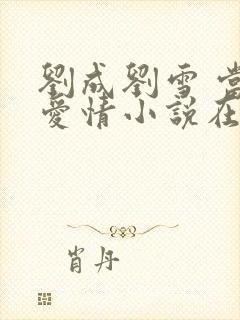 劉成劉雪 當
愛情小說在
肖丹